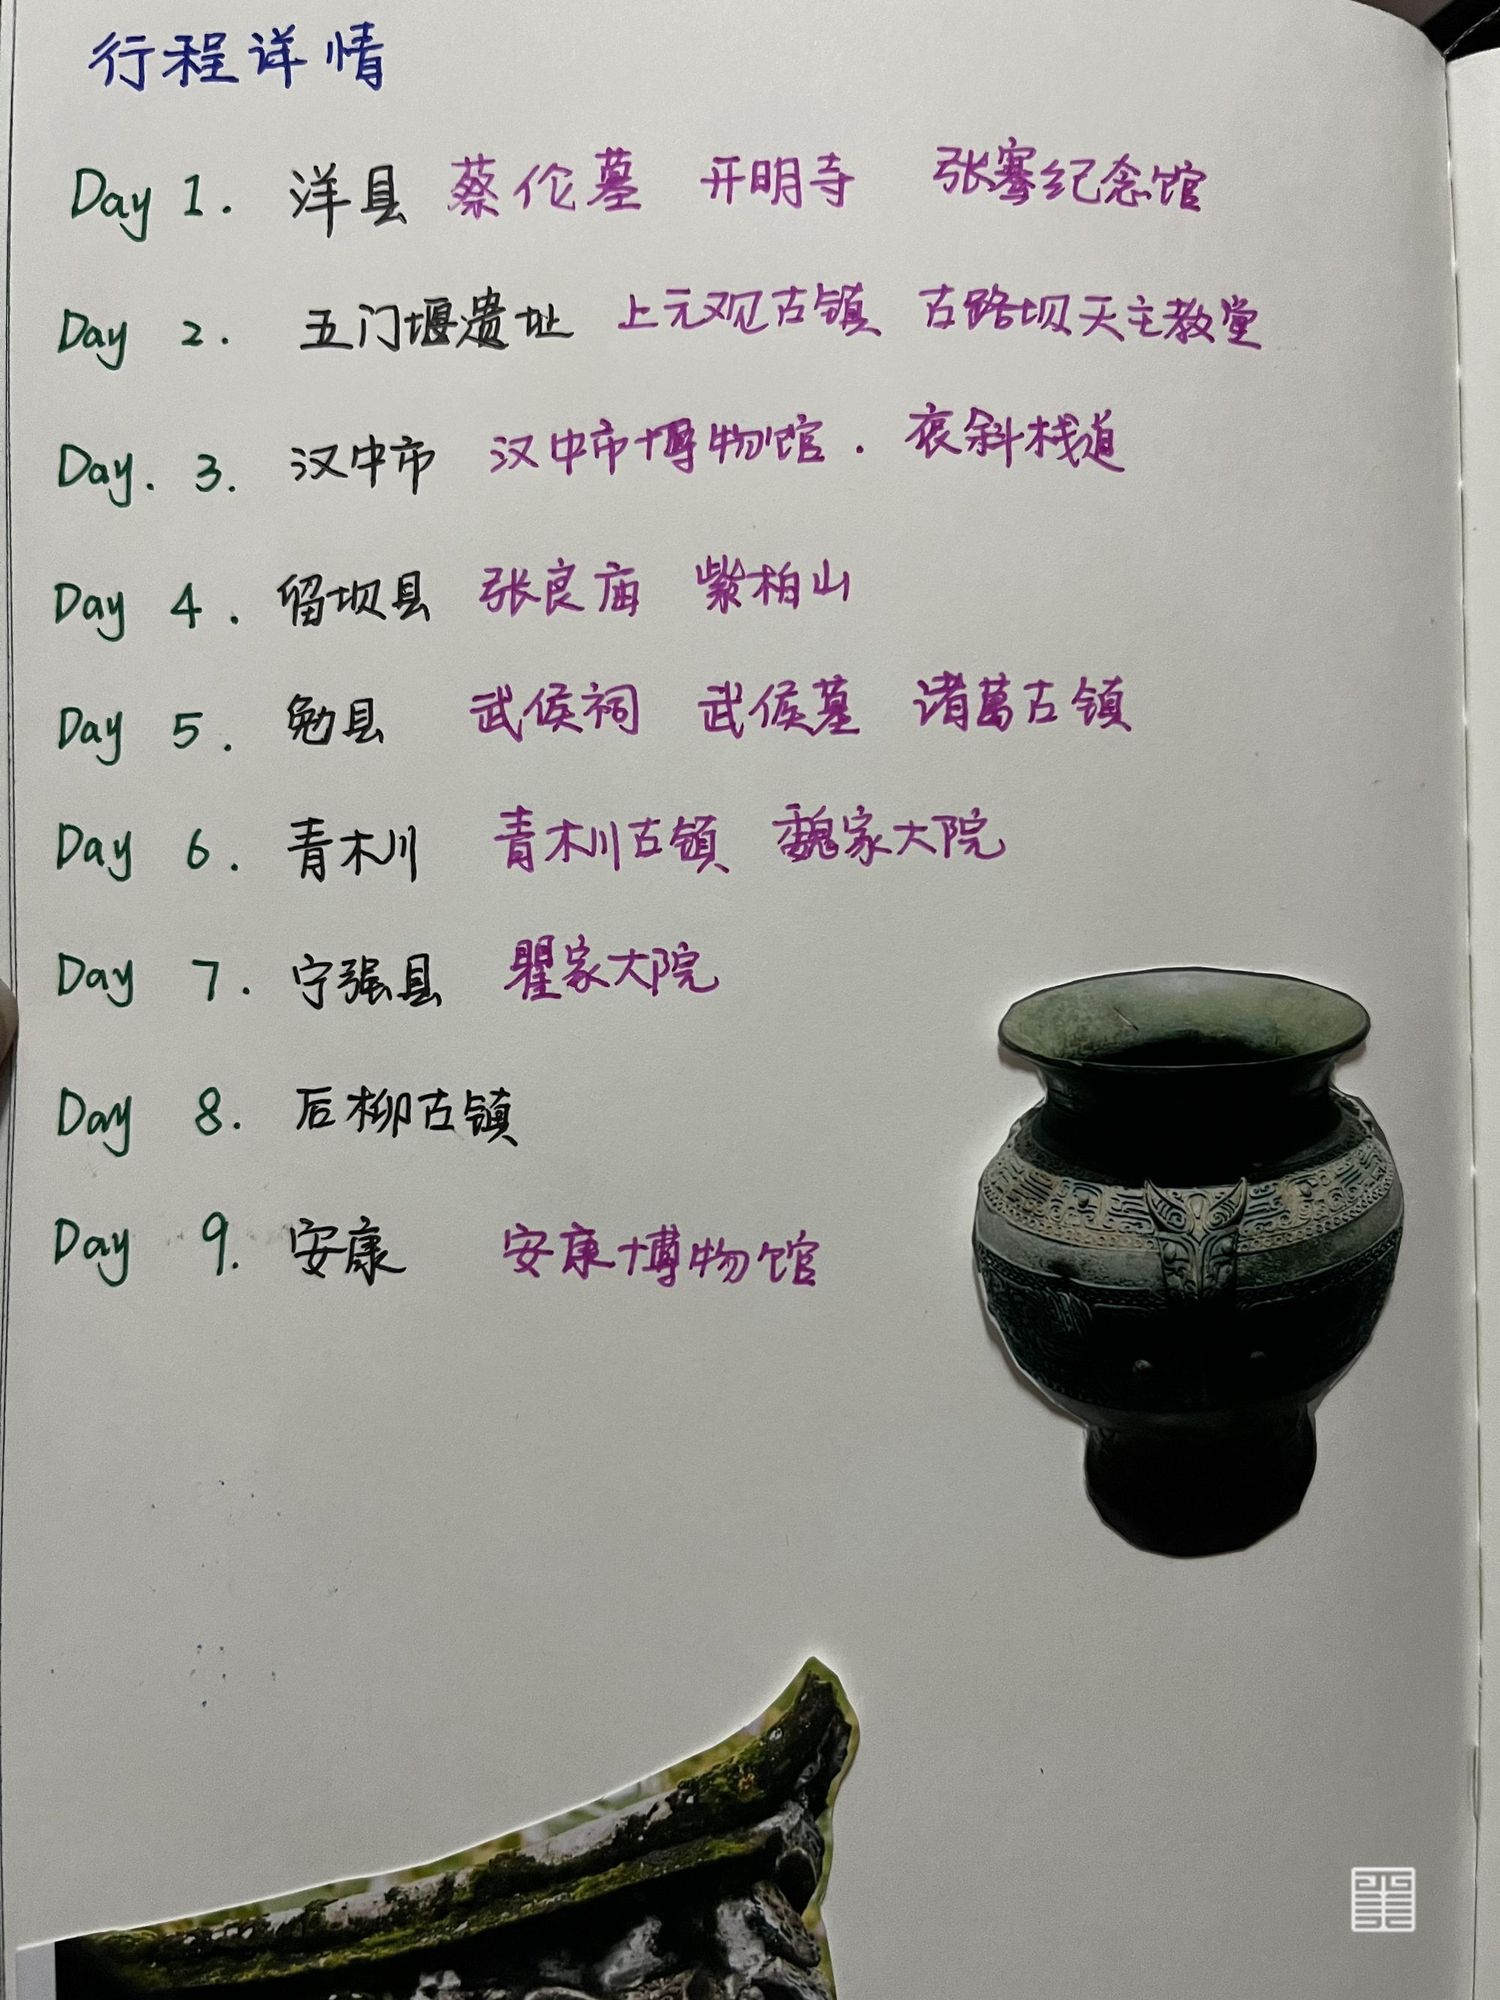 行程详情
Day 1. 洋县 蔡伦墓 开明寺 张骞纪念馆
Day 2. 五门堰遗址 上元观古镇 古路坝天主教堂
Day. 3. 汉中市 汉中市博物馆. 褒斜栈道
Day 4. 留坝县 张良庙 紫柏山
Day 5. 勉县 武侯祠 武侯墓 诸葛古镇
Day 6. 青木川 青木川古镇 魏家大院
Day 7. 宁强县 瞿家大院
Day 8. 后柳古镇
Day 9. 安康 安康博物馆